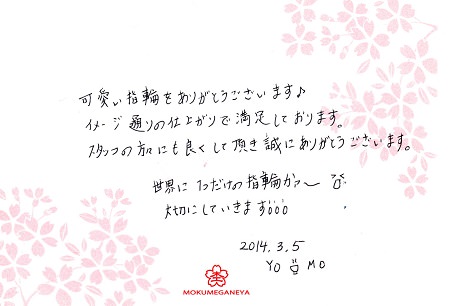 可愛い指輪をありがとうございます♪
イメージ通りの仕上がりで満足しております。
スタッフの方々にも良くして頂き誠にありがとうございます。
世界に1つだけの指輪かァ〜
大切にしていきます
2014.3.5
YO MO
MOKUMEGANEYA